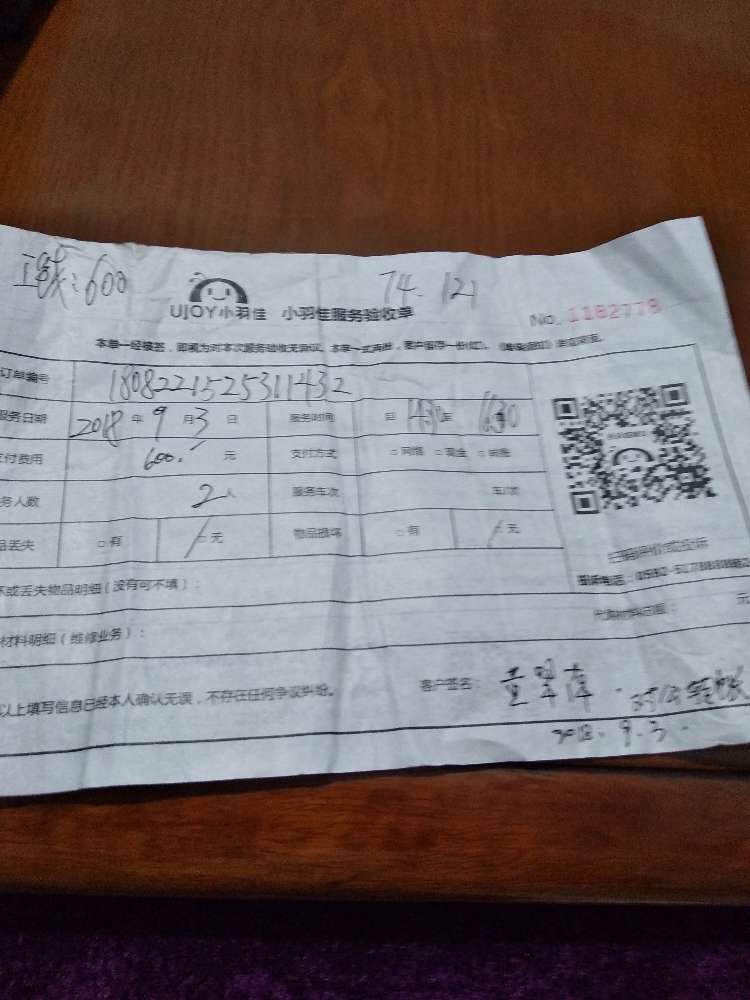 600 74.121
UJOY小羽佳 小羽佳服务验收单 No. 1182778
本单一经签, 即视为对本次服务验收无异议, 本单一式两联, 客户留存一份(红),
订单编号 1808221525311432
服务日期 2018年9月3日 服务时间 自1430至1630
付费用 600. 元 支付方式 □网络 □现金 □
务人数 2人 服务车次 车/次
品丢失 □有 □无 物品损坏 □有 □无
扫码评价或投诉
坏或丢失物品明细(没有可不填):
代购材料总额: 元
材料明细(维修业务):
以上填写信息已经本人确认无误,不存在任何争议纠纷。 客户签名:
2018.9.3.